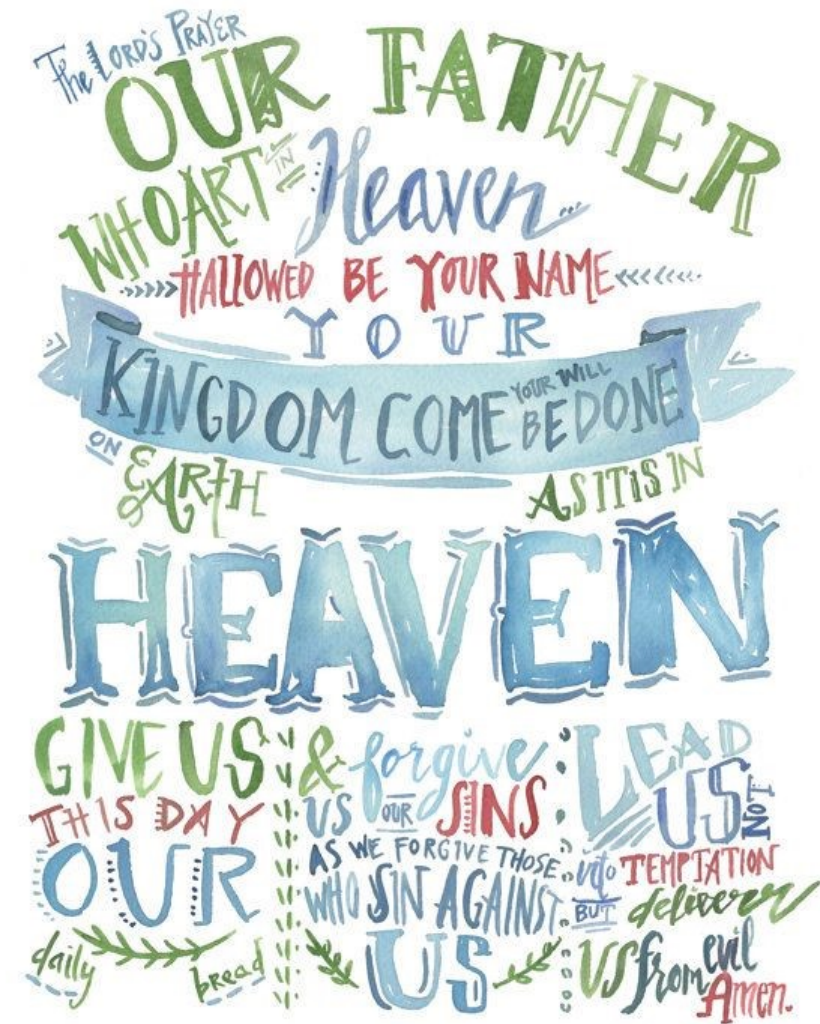 The LORD'S PRAYER
OUR FATHER
WHO ART IN Heaven...
HALLOWED BE YOUR NAME
YOUR
KINGDOM COME YOUR WILL BE DONE
ON EARTH AS IT IS IN
HEAVEN
GIVE US
THIS DAY
OUR
daily bread
& forgive
US OUR SINS
AS WE FORGIVE THOSE
WHO SIN AGAINST
US
LEAD
US NOT
into TEMPTATION
BUT deliver
US from evil
Amen.